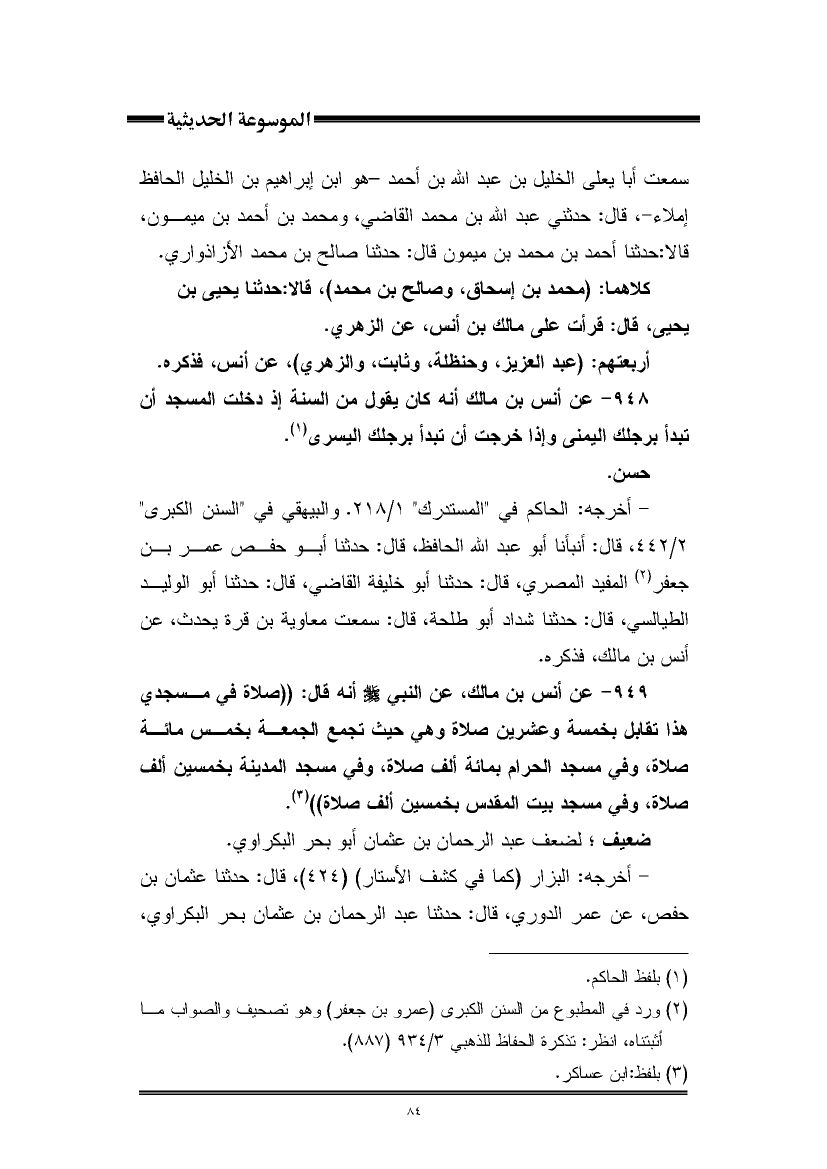 الموسوعة الحديثية
سمعت أبا يعلى الخليل بن عبد الله بن أحمد –هو ابن إبراهيم بن الخليل الحافظ
إملاء-، قال: حدثني عبد الله بن محمد القاضي، ومحمد بن أحمد بن ميمـــون،
قالا:حدثنا أحمد بن محمد بن ميمون قال: حدثنا صالح بن محمد الأزاذواري.
كلاهما: (محمد بن إسحاق، وصالح بن محمد)، قالا:حدثنا يحيى بن
يحيى، قال: قرأت على مالك بن أنس، عن الزهري.
أربعتهم: (عبد العزيز، وحنظلة، وثابت، والزهري)، عن أنس، فذكره.
٩٤٨- عن أنس بن مالك أنه كان يقول من السنة إذ دخلت المسجد أن
تبدأ برجلك اليمنى وإذا خرجت أن تبدأ برجلك اليسرى(١).
حسن.
- أخرجه: الحاكم في "المستدرك" ٢١٨/١. والبيهقي في "السنن الكبرى"
٤٤٢/٢، قال: أنبأنا أبو عبد الله الحافظ، قال: حدثنا أبـــو حفـــص عمـــر بـــن
جعفر(٢) المفيد المصري، قال: حدثنا أبو خليفة القاضي، قال: حدثنا أبو الوليـــد
الطيالسي، قال: حدثنا شداد أبو طلحة، قال: سمعت معاوية بن قرة يحدث، عن
أنس بن مالك، فذكره.
٩٤٩- عن أنس بن مالك، عن النبي ﷺ أنه قال: ((صلاة في مـــسجدي
هذا تقابل بخمسة وعشرين صلاة وهي حيث تجمع الجمعـــة بخمـــس مائـــة
صلاة، وفي مسجد الحرام بمائة ألف صلاة، وفي مسجد المدينة بخمسين ألف
صلاة، وفي مسجد بيت المقدس بخمسين ألف صلاة))(٣).
ضعيف ؛ لضعف عبد الرحمان بن عثمان أبو بحر البكراوي.
- أخرجه: البزار (كما في كشف الأستار) (٤٢٤)، قال: حدثنا عثمان بن
حفص، عن عمر الدوري، قال: حدثنا عبد الرحمان بن عثمان بحر البكراوي،
(١) بلفظ الحاكم.
(٢) ورد في المطبوع من السنن الكبرى (عمرو بن جعفر) وهو تصحيف والصواب مـــا
أثبتناه، انظر: تذكرة الحفاظ للذهبي ٩٣٤/٣ (٨٨٧).
(٣) بلفظ:ابن عساكر.
٨٤